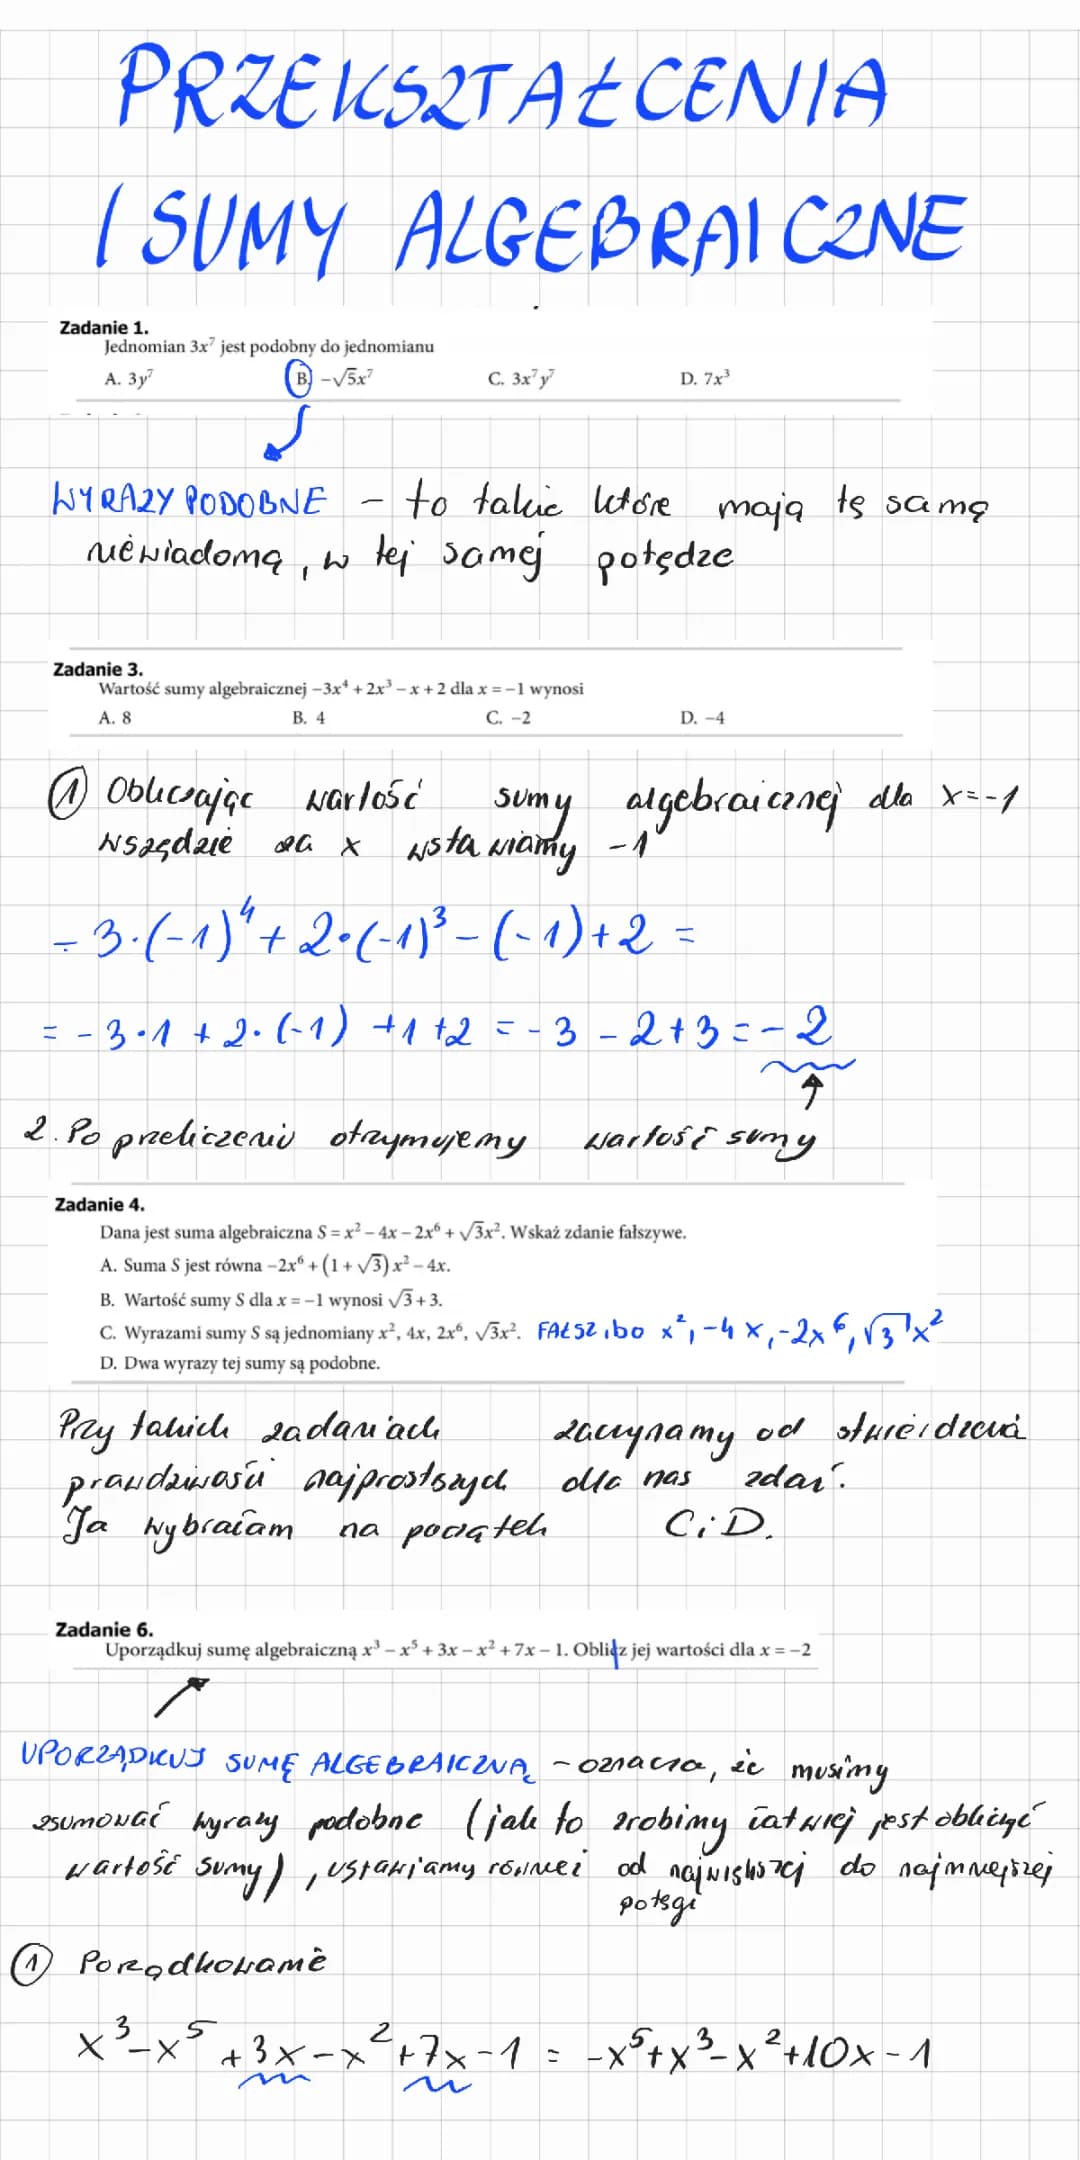 PRZEKSZTAŁCENIA
I SUMY ALGEBRAICZNE
Zadanie 1.
Jednomian 3x⁷ jest podobny do jednomianu
A. 3y⁷ B. −√5x⁷ C. 3x⁷y⁷ D. 7x³
WYRAZY PODOBNE - to takie które mają tę samą
niewiadomą, w tej samej potędze
Zadanie 3.
Wartość sumy algebraicznej −3x⁴ + 2x³ − x + 2 dla x = −1 wynosi
A. 8 B. 4 C. −2 D. −4
① Obliczając wartość sumy algebraicznej dla x=-1
wszędzie za x wstawiamy -1
-3·(-1)⁴+2·(-1)³-(-1)+2=
=-3·1+2·(-1)+1+2=-3-2+3=-2
2. Po przeliczeniu otrzymujemy wartość sumy
Zadanie 4.
Dana jest suma algebraiczna S = x² − 4x − 2x⁶ + √3x². Wskaż zdanie fałszywe.
A. Suma S jest równa −2x⁶ + (1 + √3)x² − 4x.
B. Wartość sumy S dla x = −1 wynosi √3 + 3.
C. Wyrazami sumy S są jednomiany x², 4x, 2x⁶, √3x². FAŁSZ, bo x², -4x, -2x⁶, √3x²
D. Dwa wyrazy tej sumy są podobne.
Przy takich zadaniach zaczynamy od stwierdzenia
prawdziwości najprostszych dla nas zdań.
Ja wybrałam na początek C i D.
Zadanie 6.
Uporządkuj sumę algebraiczną x³ − x⁵ + 3x − x² + 7x − 1. Oblicz jej wartości dla x = −2
UPORZĄDKUJ SUMĘ ALGEBRAICZNĄ - oznacza, że musimy
zsumować wyrazy podobne (jak to zrobimy łatwiej jest obliczyć
wartość sumy), ustawiamy również od największej do najmniejszej
potęgi
① Porządkowanie
x³-x⁵+3x-x²+7x-1 = -x⁵+x³-x²+10x-1